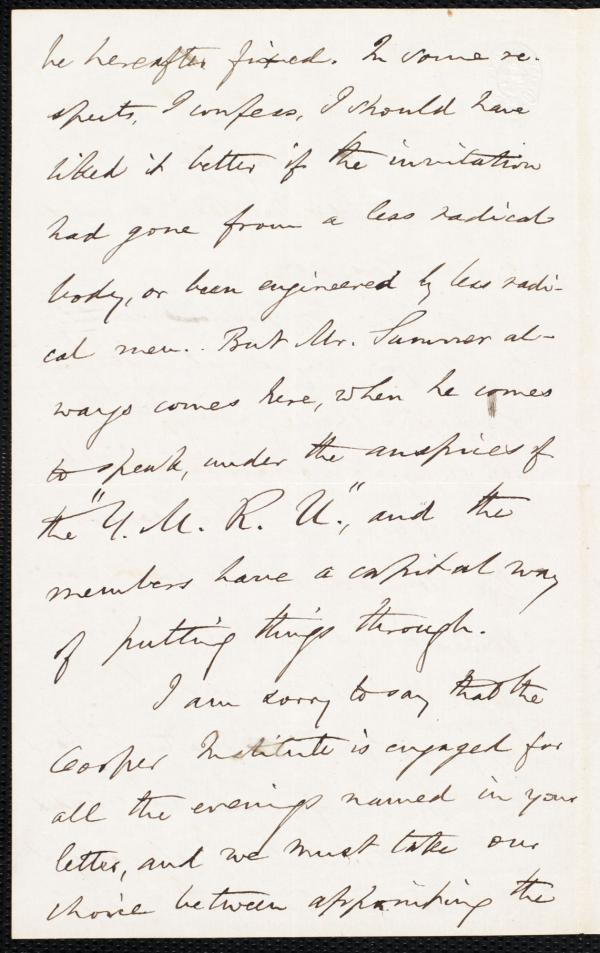 be hereafter fixed. In some re-
spects, I confess, I should have
liked it better if the invitation
had gone from a less radical
body, or been engineered by less radi-
cal men. But Mr. Sumner al-
ways comes here, when he comes
to speak, under the auspices of
the "Y. M. R. U.", and the
members have a capital way
of putting things through.
I am sorry to say that the
Cooper Institute is engaged for
all the evenings named in your
letter, and we must take our
choice between appointing the